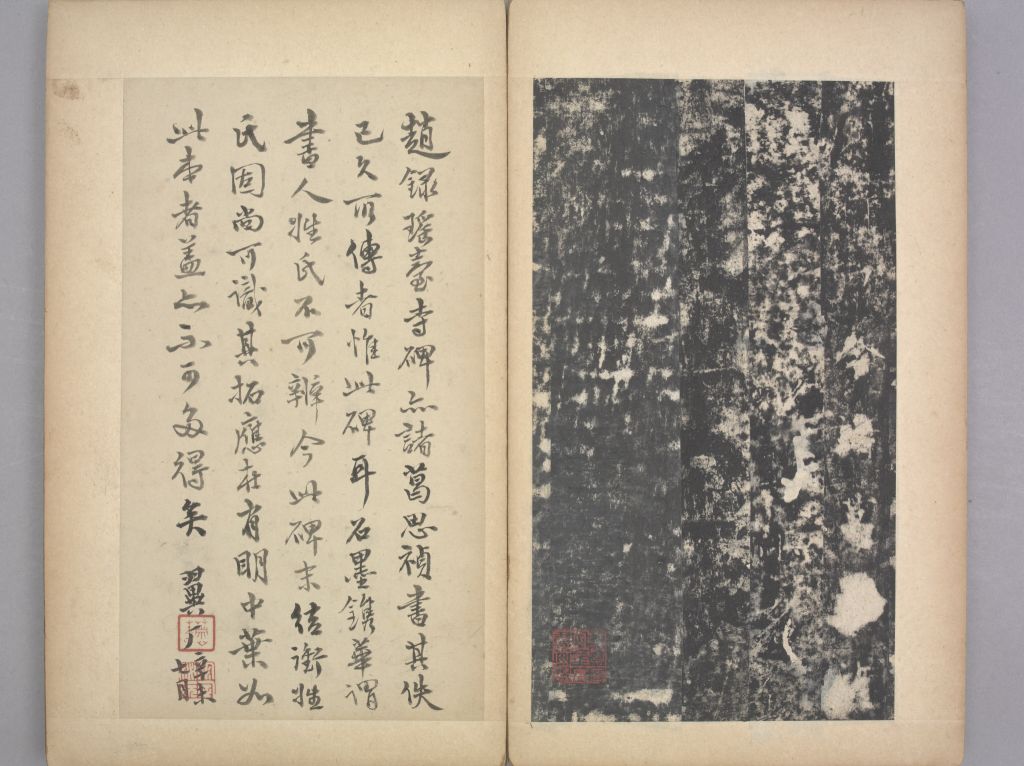 趙錄瑤臺寺碑亦諸葛思禎書其佚
已久可傳者惟此碑耳石墨鐫華謂
書人姓氏不可辨今此碑末結銜姓
氏固尚可識其拓應在有明中葉如
此本者蓋亦不可多得矣 翼厂
七月